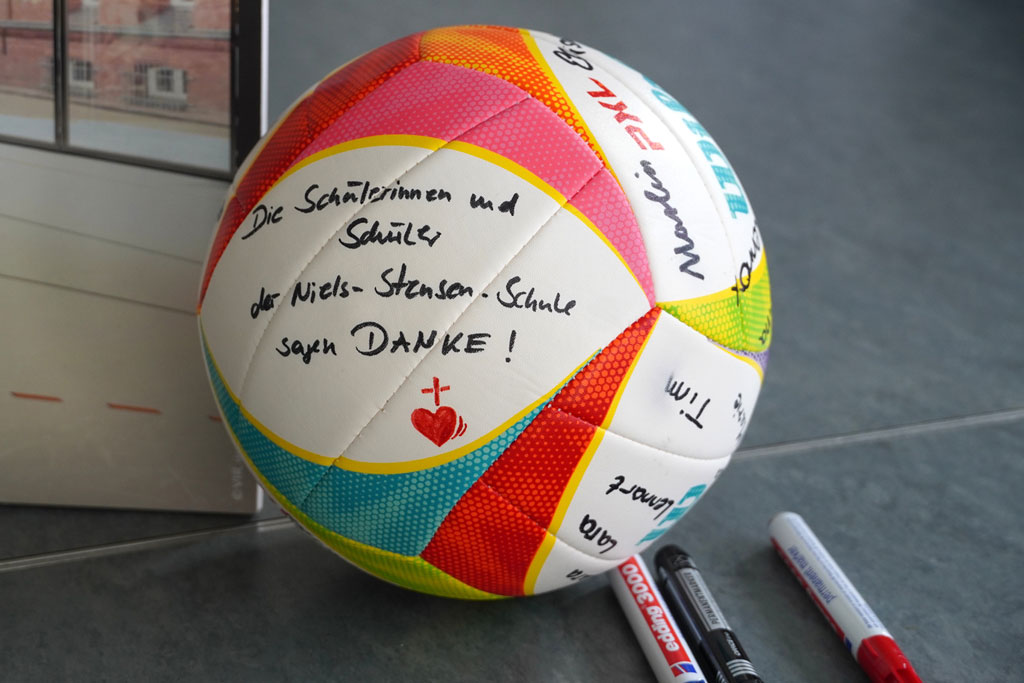 Die Schülerinnen und
Schüler
der Niels-Stensen-Schule
sagen DANKE!
PXL
Timm
Lennart
Lara
edding 3000
Permanent Marker